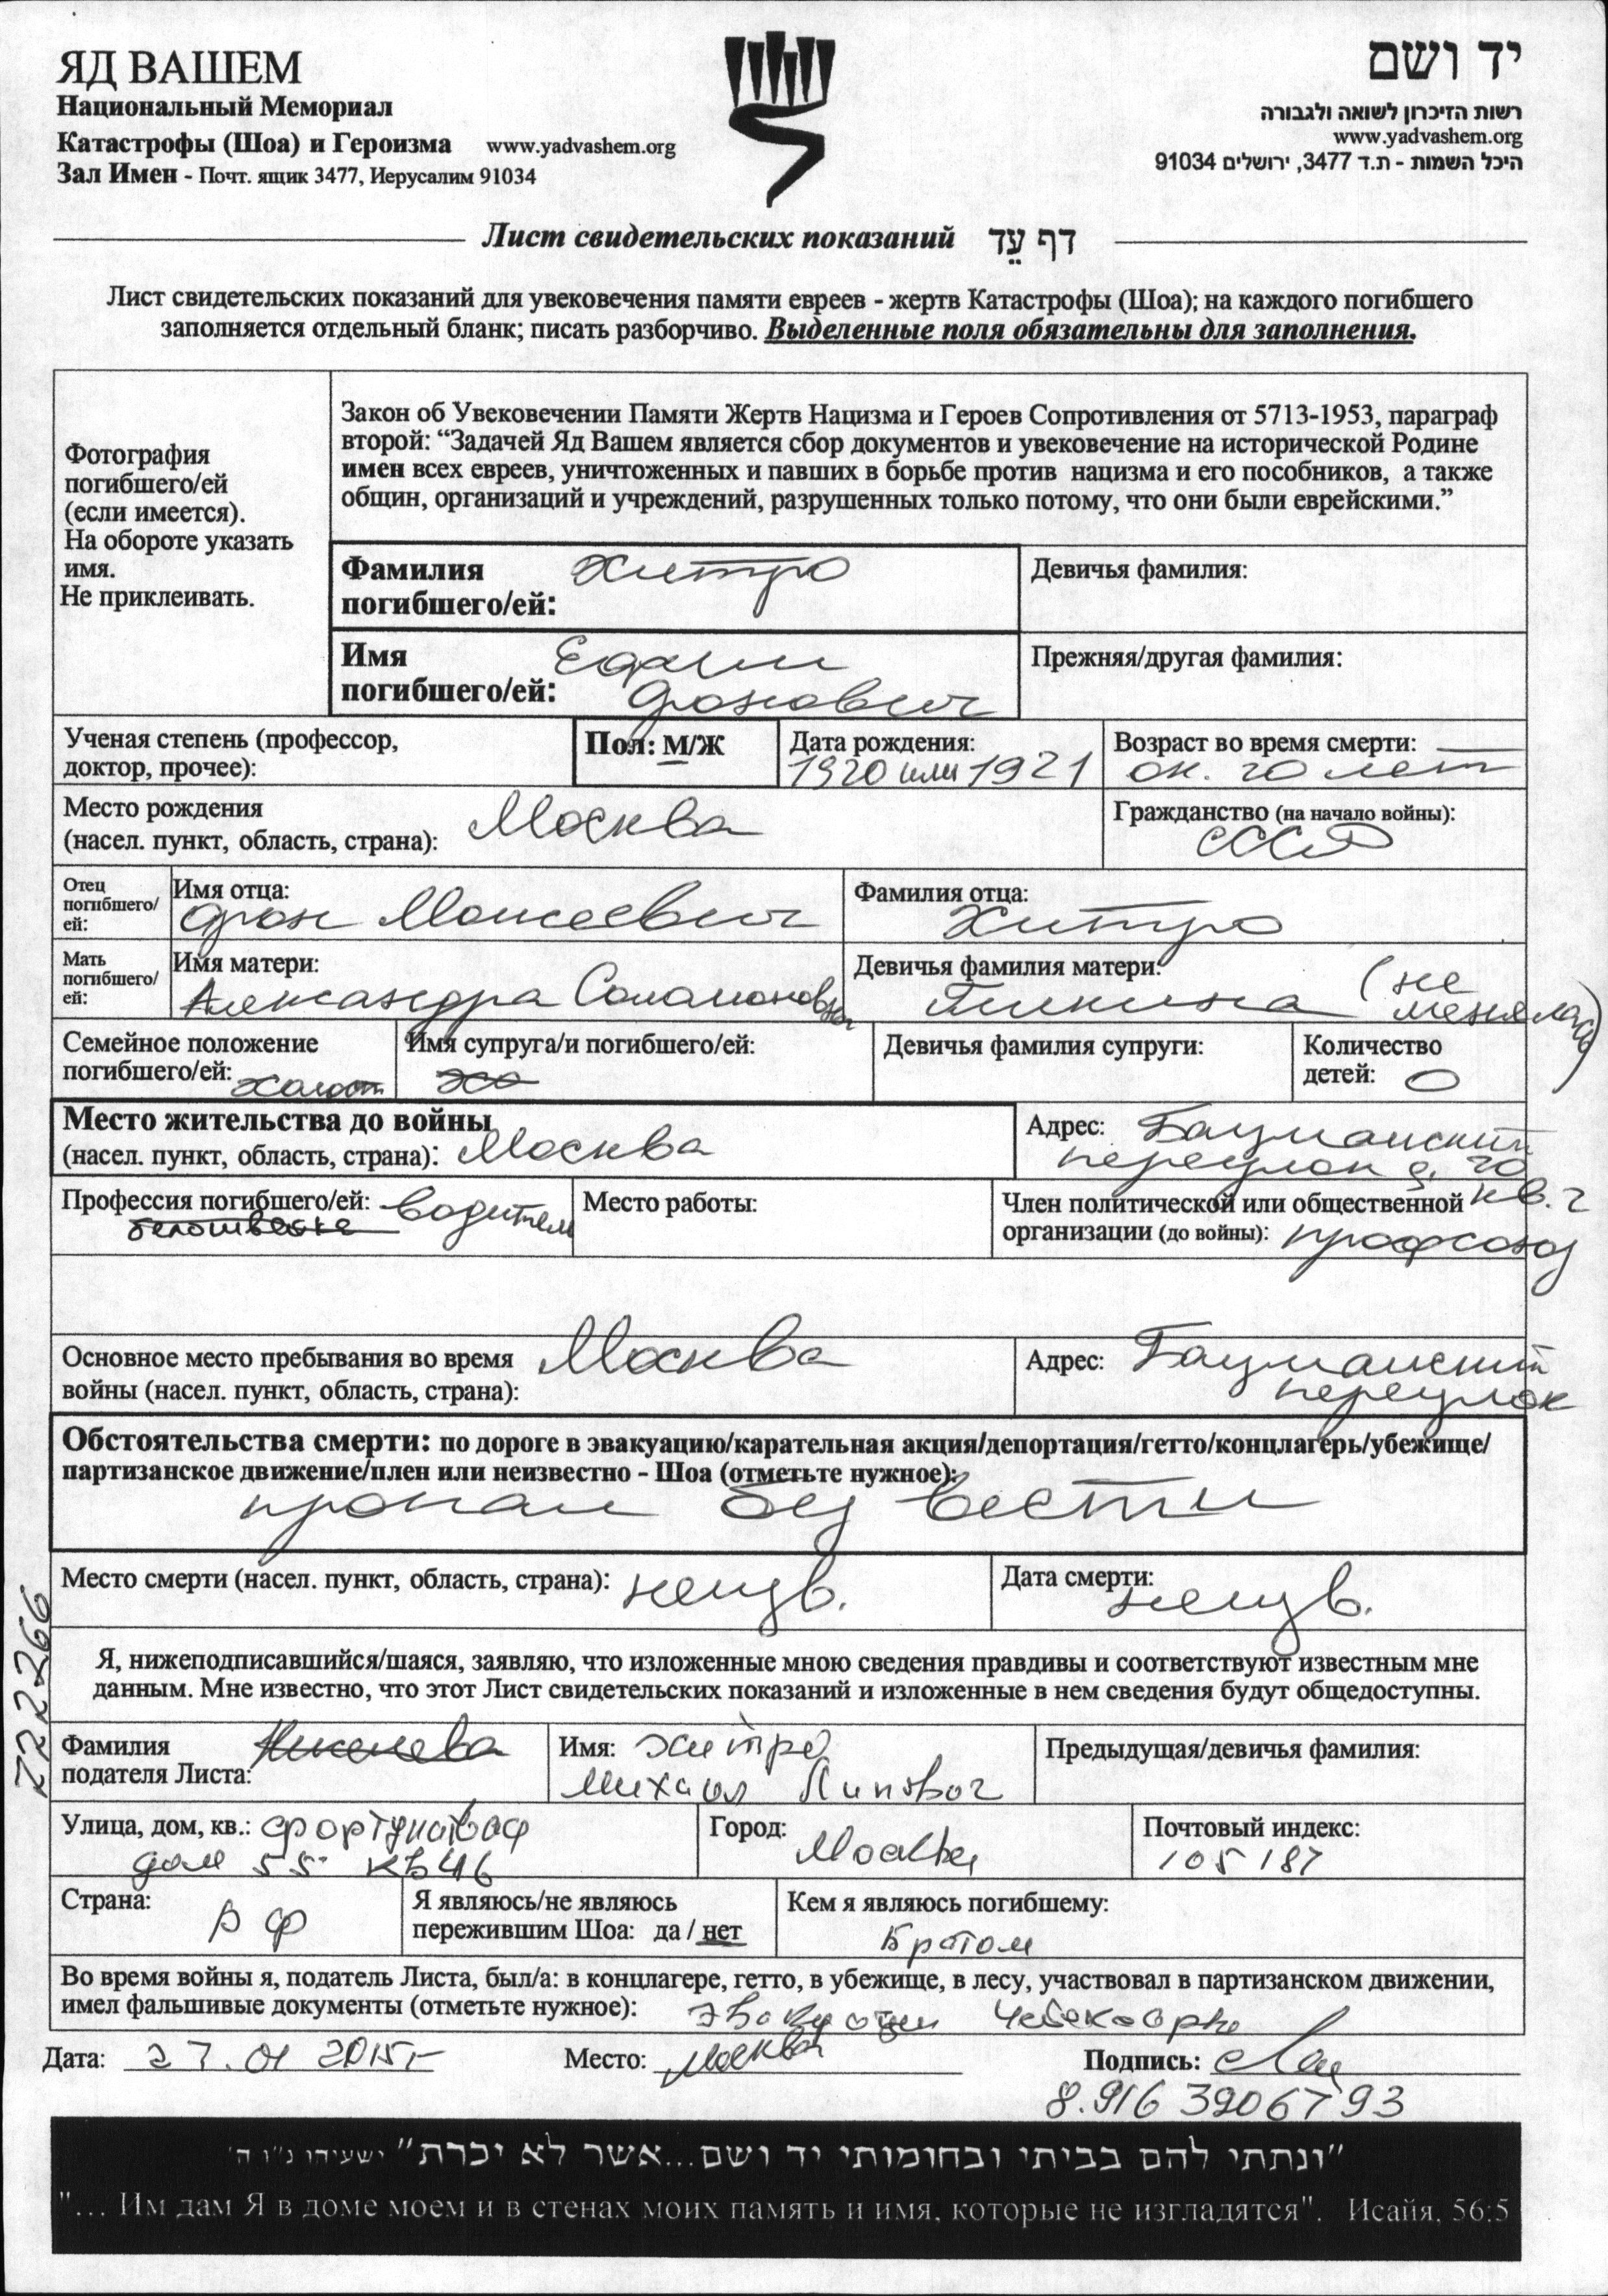 ЯД ВАШЕМ
Национальный Мемориал
Катастрофы (Шоа) и Героизма www.yadvashem.org
Зал Имен - Почт. ящик 3477, Иерусалим 91034
יד ושם
רשות הזיכרון לשואה ולגבורה
www.yadvashem.org
היכל השמות - ת.ד 3477, ירושלים 91034
Лист свидетельских показаний דף עֵד
Лист свидетельских показаний для увековечения памяти евреев - жертв Катастрофы (Шоа); на каждого погибшего
заполняется отдельный бланк; писать разборчиво. Выделенные поля обязательны для заполнения.
Фотография
погибшего/ей
(если имеется).
На обороте указать
имя.
Не приклеивать.
Закон об Увековечении Памяти Жертв Нацизма и Героев Сопротивления от 5713-1953, параграф
второй: “Задачей Яд Вашем является сбор документов и увековечение на исторической Родине
имен всех евреев, уничтоженных и павших в борьбе против нацизма и его пособников, а также
общин, организаций и учреждений, разрушенных только потому, что они были еврейскими.”
Фамилия погибшего/ей: Хитро
Девичья фамилия:
Имя погибшего/ей: Ефим
Фроновича
Прежняя/другая фамилия:
Ученая степень (профессор,
доктор, прочее):
Пол: М/Ж
Дата рождения:
1920 или 1921
Возраст во время смерти:
ок. 20 лет
Место рождения
(насел. пункт, область, страна): Москва
Гражданство (на начало войны):
СССР
Отец
погибшего/
ей:
Имя отца:
Фрон Моисеевич
Фамилия отца:
Хитро
Мать
погибшего/
ей:
Имя матери:
Александра Соломоновна
Девичья фамилия матери:
(не
менялась)
Семейное положение
погибшего/ей: холост
Имя супруга/и погибшего/ей:
Девичья фамилия супруги:
Количество
детей: 0
Место жительства до войны
(насел. пункт, область, страна): Москва
Адрес: Бауманский
переулок д. 20
кв. 2
Профессия погибшего/ей: водитель
Место работы:
Член политической или общественной
организации (до войны): профсоюз
Основное место пребывания во время
войны (насел. пункт, область, страна): Москва
Адрес: Бауманский
переулок
Обстоятельства смерти: по дороге в эвакуацию/карательная акция/депортация/гетто/концлагерь/убежище/
партизанское движение/плен или неизвестно - Шоа (отметьте нужное):
пропал без вести
Место смерти (насел. пункт, область, страна): неизв.
Дата смерти:
неизв.
222266
Я, нижеподписавшийся/шаяся, заявляю, что изложенные мною сведения правдивы и соответствуют известным мне
данным. Мне известно, что этот Лист свидетельских показаний и изложенные в нем сведения будут общедоступны.
Фамилия
подателя Листа:
Имя: Хитро
Михаил
Предыдущая/девичья фамилия:
Улица, дом, кв.: Фортунатовая
дом 55 кв 46
Город:
Москва
Почтовый индекс:
105187
Страна:
РФ
Я являюсь/не являюсь
пережившим Шоа: да / нет
Кем я являюсь погибшему:
Братом
Во время войны я, податель Листа, был/а: в концлагере, гетто, в убежище, в лесу, участвовал в партизанском движении,
имел фальшивые документы (отметьте нужное): эвакуации
Дата: 27.01 2015г
Место: Москва
Подпись:
8.916 3906793
"ונתתי להם בביתי ובחומותי יד ושם...אשר לא יכרת" ישעיהו נ"ו ה'
"... Им дам Я в доме моем и в стенах моих память и имя, которые не изгладятся". Исайя, 56:5